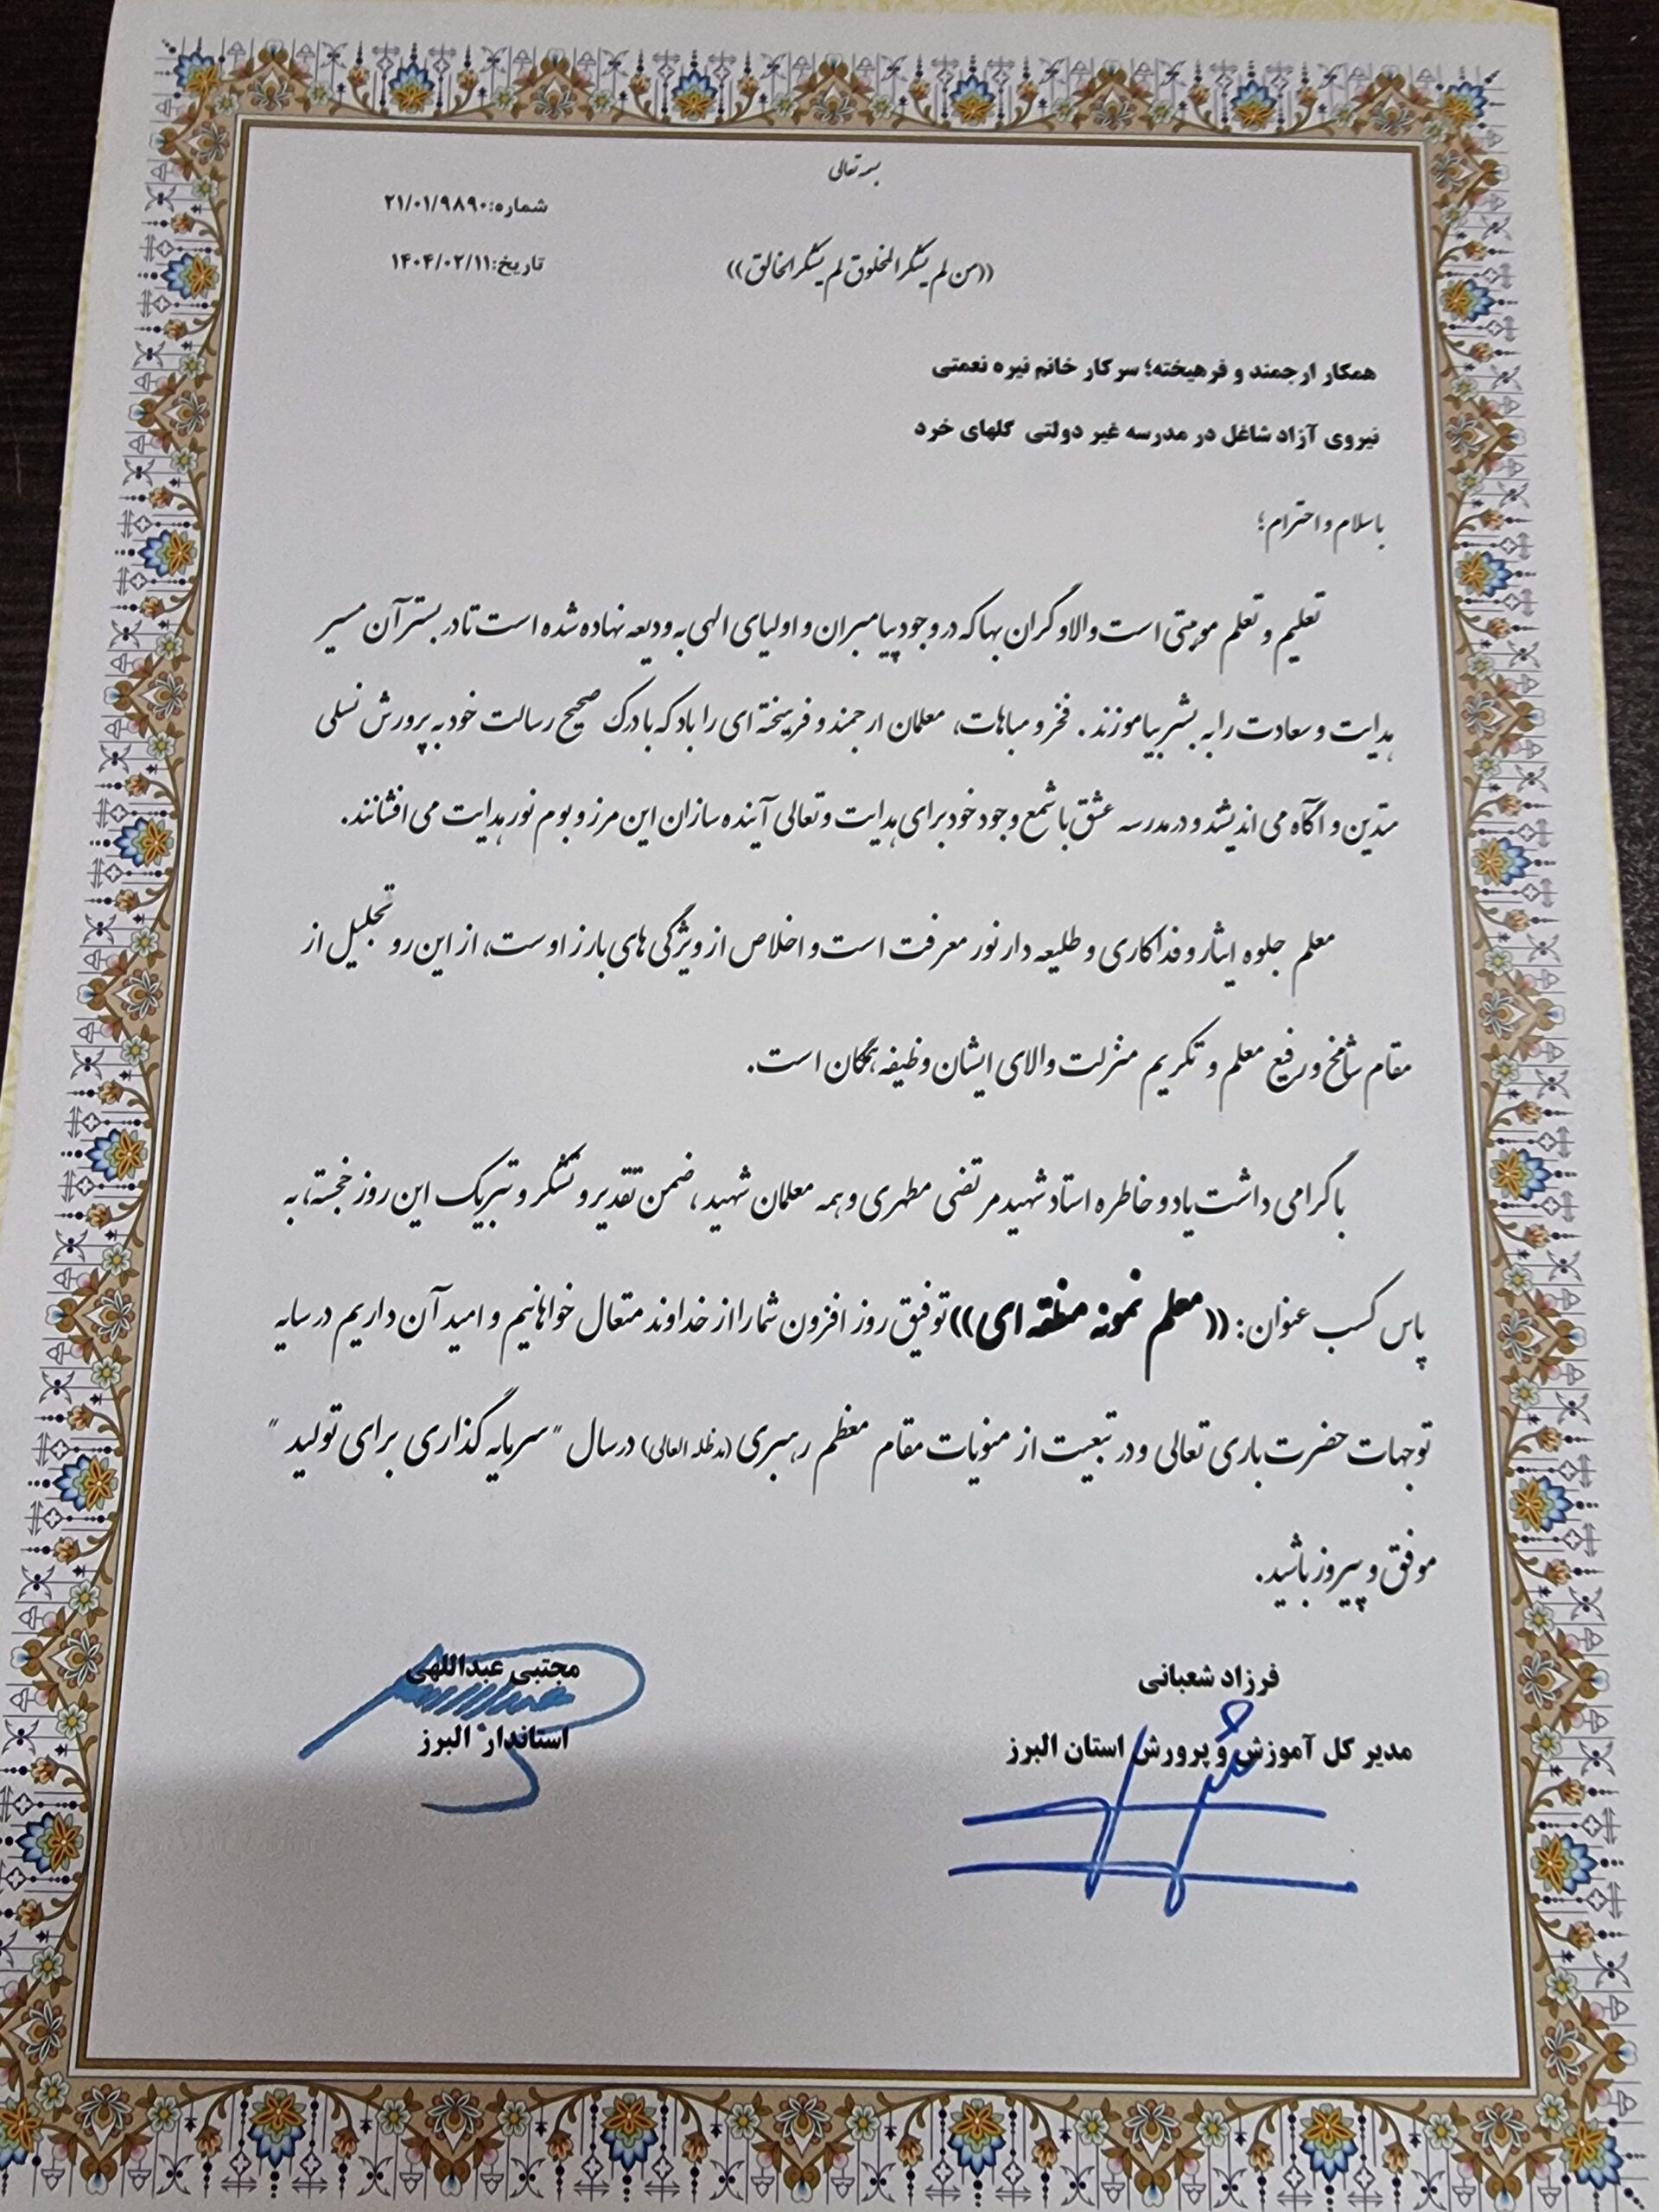 بسمه تعالی
شماره:۲۱/۰۱/۹۸۹۰
تاریخ:۱۴۰۴/۰۲/۱۱
((من لم یشکر المخلوق لم یشکر الخالق))
همکار ارجمند و فرهیخته؛ سرکار خانم نیره نعمتی
نیروی آزاد شاغل در مدرسه غیر دولتی گلهای خرد
با سلام و احترام؛
تعلیم و تعلم موهبتی است والا و گران بها که در وجود پیامبران و اولیای الهی به ودیعه نهاده شده است تا در بستر آن مسیر
هدایت و سعادت را به بشر بیاموزند. فخر و مباهات، معلمان ارجمند و فرهیخته ای را باد که با درک صحیح رسالت خود به پرورش نسلی
متدین و آگاه می اندیشد و در مدرسه عشق با شمع وجود خود برای هدایت و تعالی آینده سازان این مرز و بوم نور هدایت می افشانند.
معلم جلوه ایثار و فداکاری و طلیعه دار نور معرفت است و اخلاص از ویژگی های بارز اوست، از این رو تجلیل از
مقام شامخ و رفیع معلم و تکریم منزلت والای ایشان وظیفه همگان است.
با گرامی داشت یاد و خاطره استاد شهید مرتضی مطهری و همه معلمان شهید، ضمن تقدیر و تشکر و تبریک این روز خجسته، به
پاس کسب عنوان: ((معلم نمونه منطقه ای)) توفیق روز افزون شما را از خداوند متعال خواهانیم و امید آن داریم در سایه
توجهات حضرت باری تعالی و در تبعیت از منویات مقام معظم رهبری (مدظله العالی) در سال "سرمایه گذاری برای تولید"
موفق و پیروز باشید.
فرزاد شعبانی
مدیر کل آموزش و پرورش استان البرز
مجتبی عبداللهی
استاندار البرز